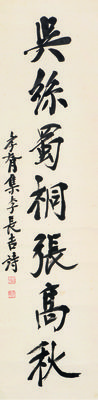 吳絲蜀桐張高秋
孝胥集李長吉詩